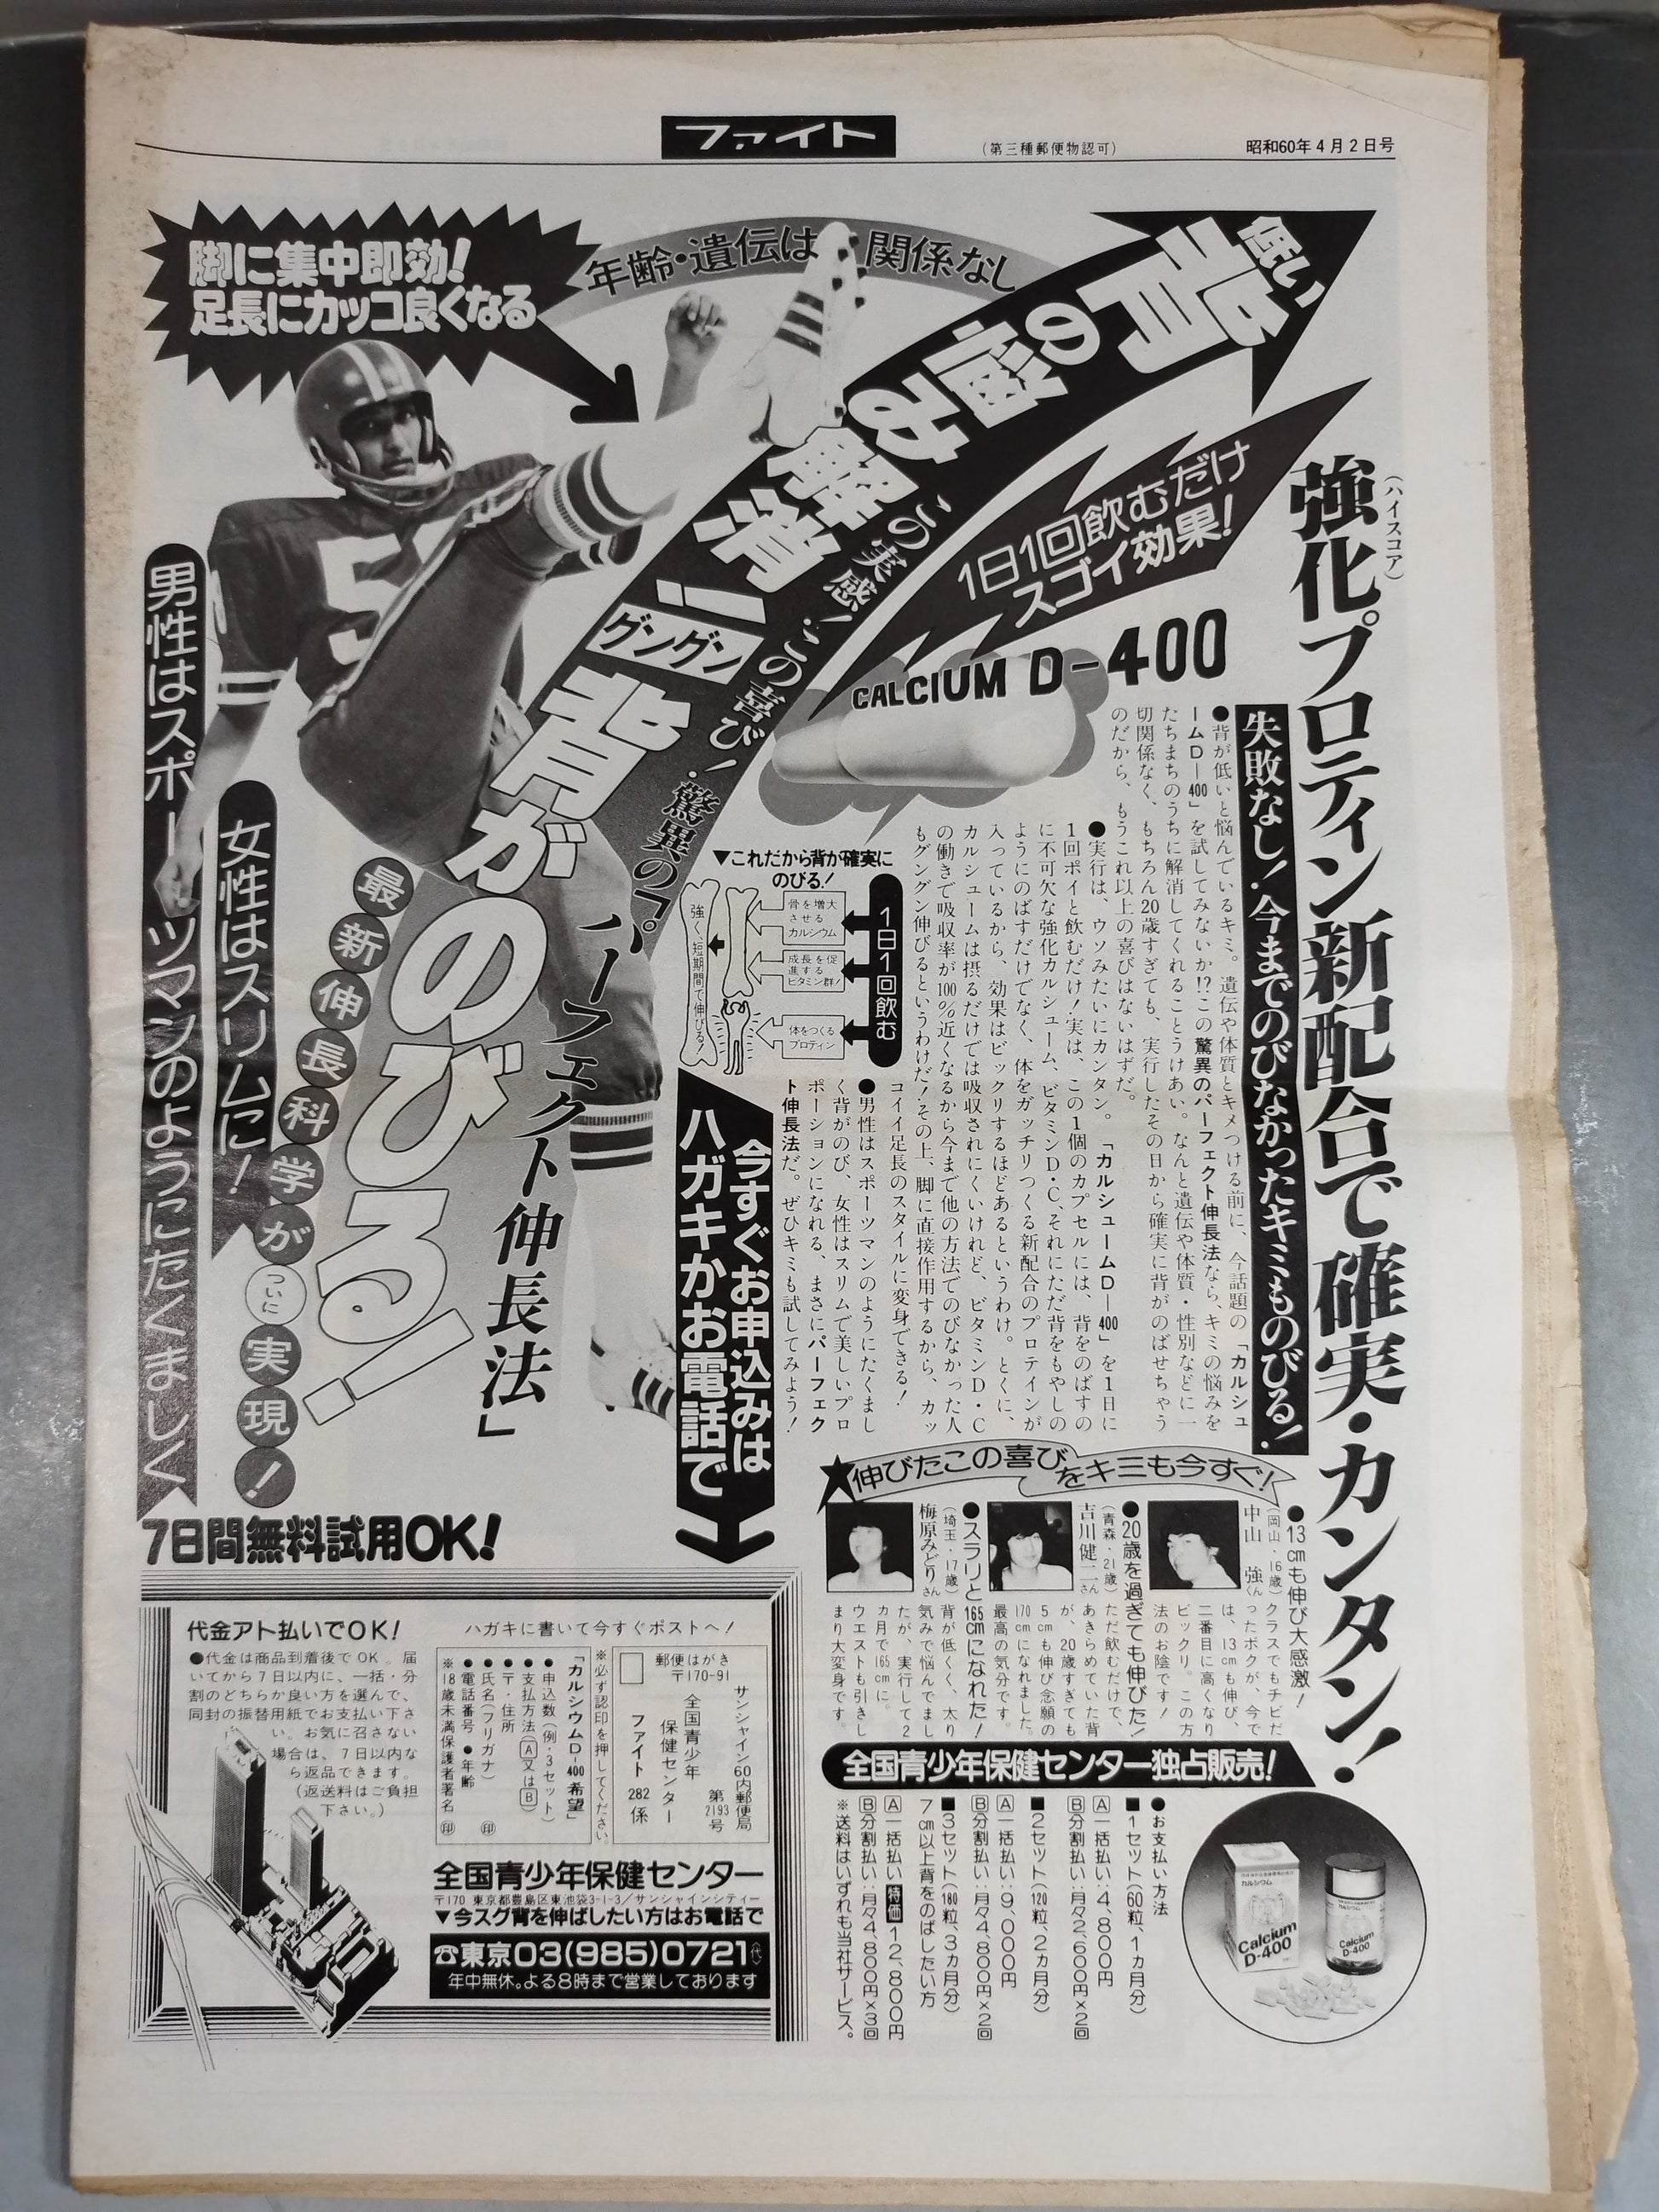 ファイト
(第三種郵便物認可)
昭和60年4月2日号
脚に集中即効!
足長にカッコ良くなる
年齢・遺伝は関係なし
低い背の悩み解消!
グングン背がのびる!
この実感!この喜び!驚異の「パーフェクト伸長法」
1日1回飲むだけ
スゴイ効果!
CALCIUM D-400
(ハイスコア)
強化プロティン新配合で確実・カンタン!
失敗なし!今までのびなかったキミものびる!
●背が低いと悩んでいるキミ。遺伝や体質とキメつける前に、今話題の「カルシュ
ームD―400」を試してみないか!?この驚異のパーフェクト伸長法なら、キミの悩みを
たちまちのうちに解消してくれることうけあい。なんと遺伝や体質・性別などに一
切関係なく、もちろん20歳すぎても、実行したその日から確実に背がのばせちゃう
のだから、もうこれ以上の喜びはないはずだ。
●実行は、ウソみたいにカンタン。「カルシュームD―400」を1日に
1回ポイと飲むだけ!実は、この1個のカプセルには、背をのばすの
に不可欠な強化カルシューム、ビタミンD・C、それにただ背をもやしの
ようにのばすだけでなく、体をガッチリつくる新配合のプロテインが
入っているから、効果はビックリするほどあるというわけ。とくに、
カルシュームは摂るだけでは吸収されにくいけれど、ビタミンD・C
の働きで吸収率が100%近くなるから今まで他の方法でのびなかった人
もグングン伸びるというわけだ!その上、脚に直接作用するから、カッ
コイイ足長のスタイルに変身できる!
●男性はスポーツマンのようにたくまし
く背がのび、女性はスリムで美しいプロ
ポーションになれる、まさにパーフェク
ト伸長法だ。ぜひキミも試してみよう!
▼これだから背が確実に
のびる!
1日1回飲む
骨を増大
させる
カルシウム
成長を促
進する
ビタミン群!
体をつくる
プロティン
強く、短期間で伸びる!
今すぐお申込みは
ハガキかお電話で
男性はスポーツマンのようにたくましく
女性はスリムに!
最新伸長科学がついに実現!
★伸びたこの喜びをキミも今すぐ!
●13cmも伸び大感激!
(岡山・16歳)
中山 強くん
クラスでもチビだ
ったボクが、今で
は、13cmも伸び、
二番目に高くなり
ビックリ。この方
法のお陰です!
●20歳を過ぎても伸びた!
(青森・21歳)
吉川健二さん
ただ飲むだけで、
あきらめていた背
が、20歳すぎても
5cmも伸び念願の
170cmになれました。
最高の気分です。
●スラリと165cmになれた!
(埼玉・17歳)
梅原みどりさん
背が低くく、太り
気みで悩んでまし
たが、実行して2
カ月で165cmに。
ウエストも引きし
まり大変身です。
全国青少年保健センター独占販売!
●お支払い方法
■1セット(60粒、1カ月分)
A一括払い:4,800円
B分割払い:月々2,600円×2回
■2セット(120粒、2カ月分)
A一括払い:9,000円
B分割払い:月々4,800円×2回
■3セット(180粒、3カ月分)
7cm以上背をのばしたい方
A一括払い特価12,800円
B分割払い:月々4,800円×3回
※送料はいずれも当社サービス。
カルシウム
Calcium
D-400
Calcium
D-400
7日間無料試用OK!
代金アト払いでOK!
●代金は商品到着後でOK。届
いてから7日以内に、一括・分
割のどちらか良い方を選んで、
同封の振替用紙でお支払い下さ
い。お気に召さない
場合は、7日以内な
ら返品できます。
(返送料はご負担
下さい。)
ハガキに書いて今すぐポストへ!
郵便はがき
〒170-91
サンシャイン60内郵便局
第2193号
全国青少年
保健センター
ファイト282係
※必ず認印を押してください。
「カルシウムD-400希望」
●申込数(例・3セット)
●支払方法(A又はB)
●〒・住所
●氏名(フリガナ) 印
●電話番号 ●年齢
※18歳未満保護者署名 印
全国青少年保健センター
〒170 東京都豊島区東池袋3-1-3/サンシャインシティー
▼今スグ背を伸ばしたい方はお電話で
☎東京03(985)0721代
年中無休。よる8時まで営業しております